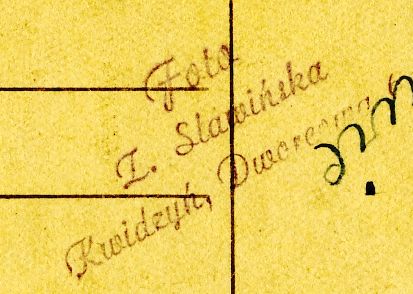 Foto
Z. Sławińska
Kwidzyń, Dworcowa